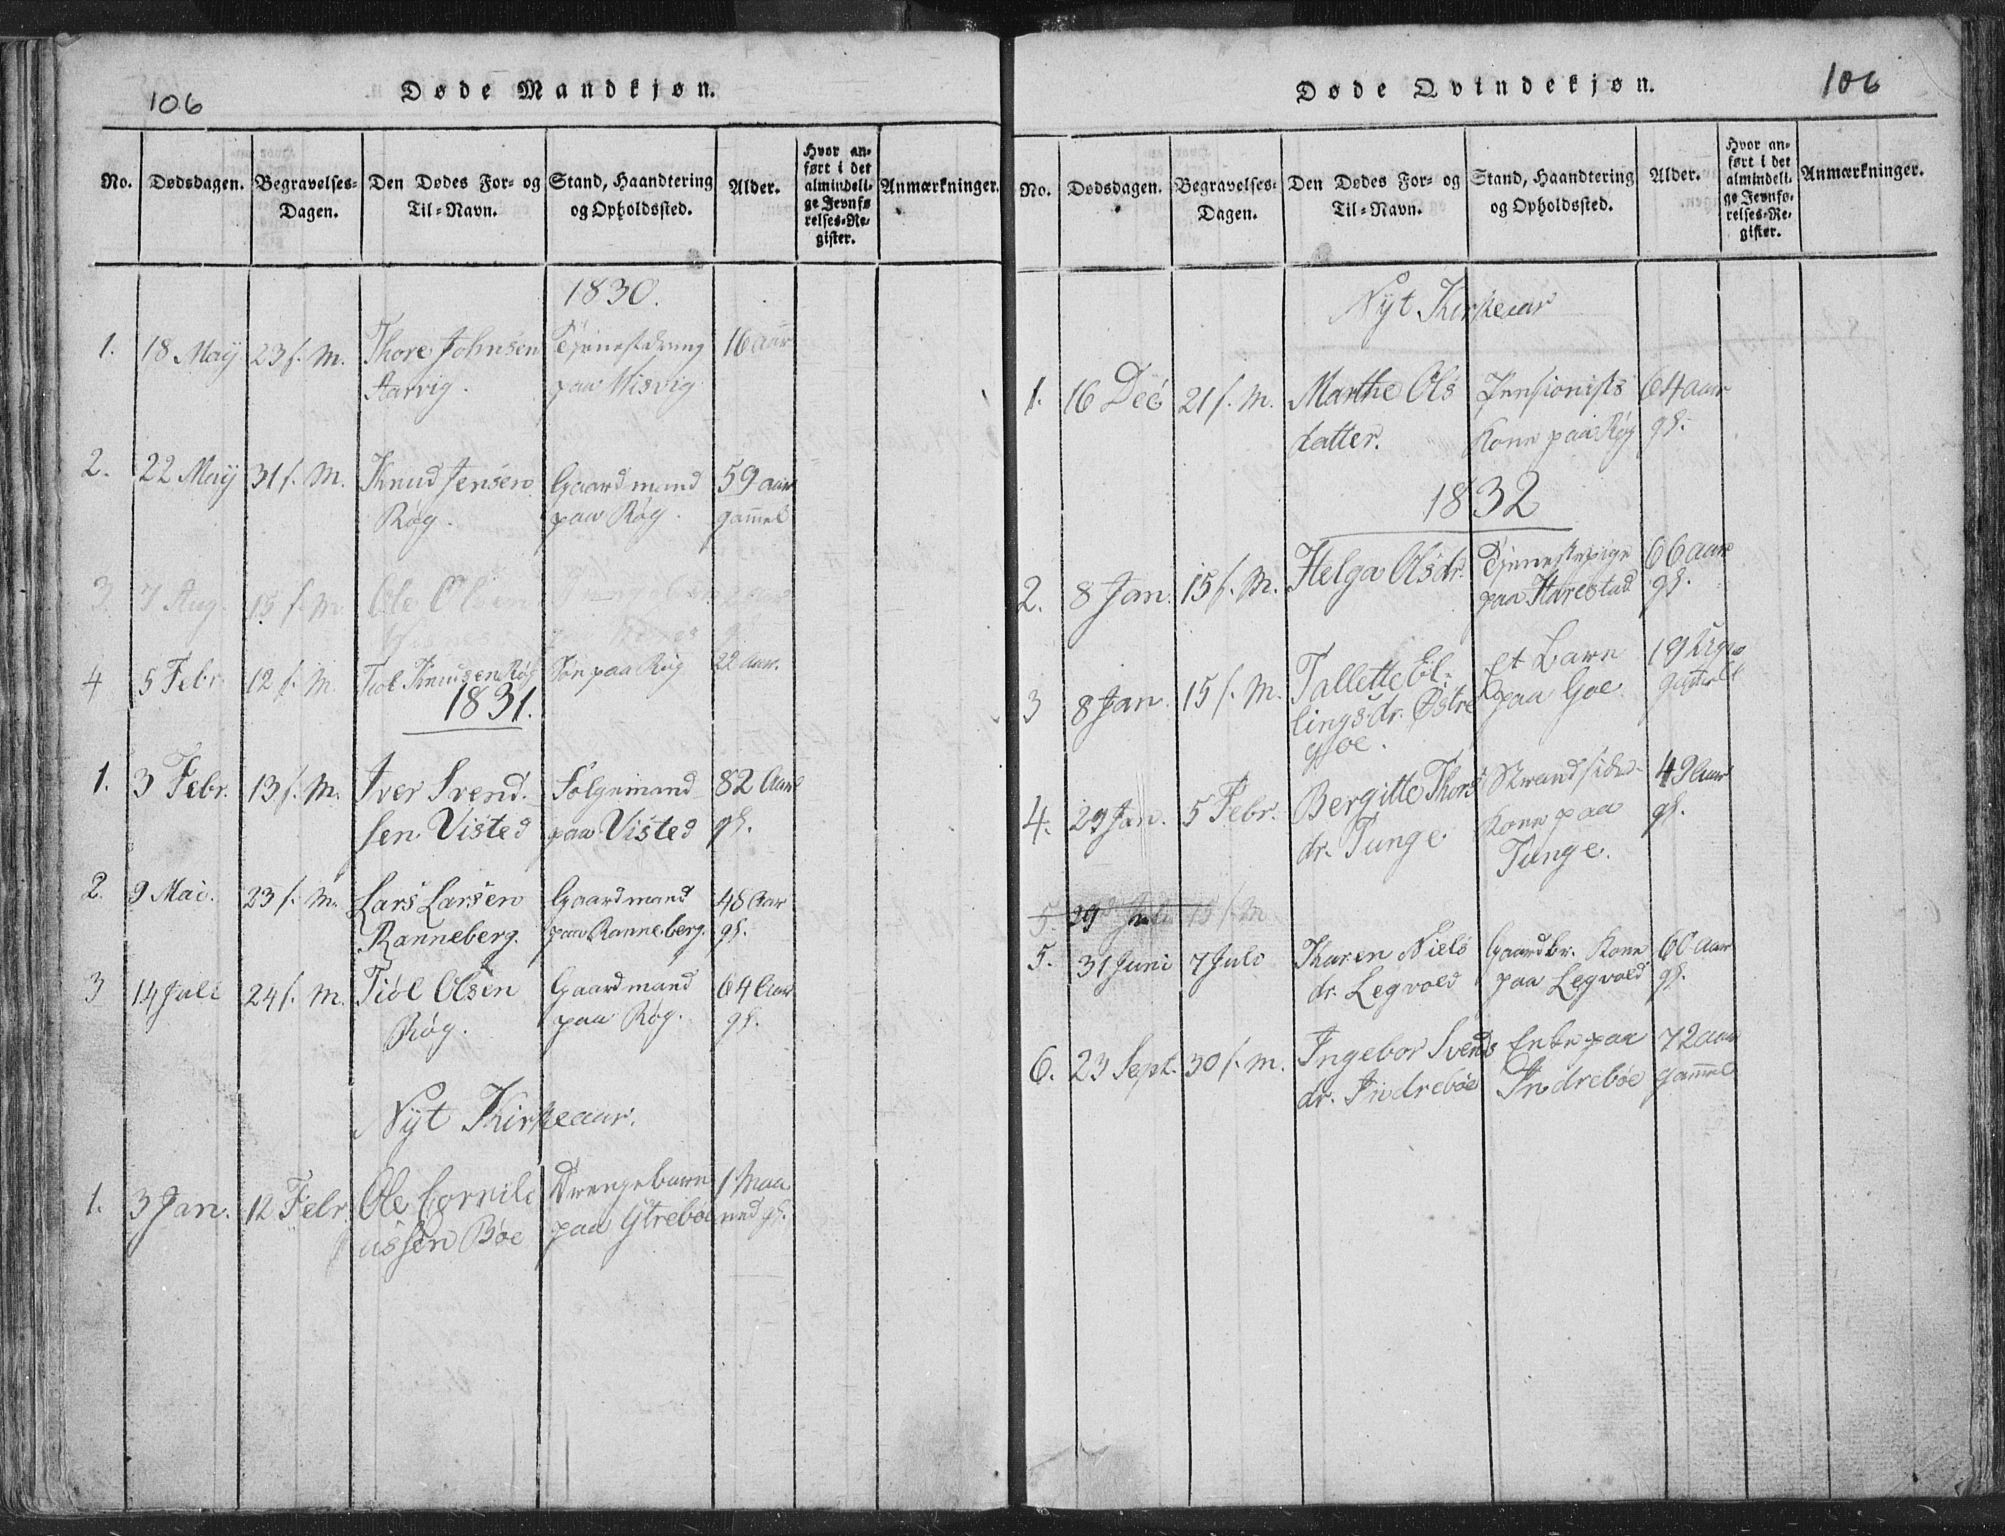 106
Døde Mandkjøn.
No. Dødsdagen. Begravelses-Dagen. Den Dødes For- og Til-Navn. Stand, Haandtering og Opholdssted. Alder. Hvor anført i det almindelige Jevnførelses-Register. Anmærkninger.
1830.
1. 18 May 23 s. M. Thore Johnsen Tjenestdreng 16 aar
Aarvig. paa Misvig
2. 22 May 31 s. M. Knud Jensen Gaardmand 59 aar
Røg. paa Røg. gammel
3. 7 Aug. 15 s. M. Ole Olsen
gl.
4 5 Febr. 12 s. M. Tiøl Knudsen Røg Søn paa Røg 22 aar.
1831.
1. 3 Febr. 13 s. M. Iver Svend- Følgemand 82 Aar
sen Visted paa Visted gl.
2. 9 Mai. 23 s. M. Lars Larsen Gaardmand 48 Aar
Ranneberg. paa Ranneberg. gl.
3 14 Juli 24 s. M. Tiøl Olsen Gaardmand 64 Aar
Røg. paa Røg. gl.
Nyt Kirkeaar.
1. 3 Jan. 12 Febr. Ole Cornili Drengebarn 1 Maa
ussen Bøe paa Ytrebøe ned gl.
Døde Qvindekjøn.
106
No. Dødsdagen. Begravelses-Dagen. Den Dødes For- og Til-Navn. Stand, Haandtering og Opholdssted. Alder. Hvor anført i det almindelige Jevnførelses-Register. Anmærkninger.
Nyt Kirkeaar
1. 16 Dec 21 s. M. Marthe Ols Pensionists 64 aar
datter. Kone paa Røg gl.
1832
2. 8 Jan. 15 s. M. Helga Olsdr. Tjenestepige 66 aar
paa Harestad gl.
3 8 Jan. 15 s. M. Tallette El- et Barn 19 Uger
lingsdr. Østre paa Goe
Goe.
4. 29 Jan. 5 Febr. Bergitte Thors Strandsidder- 49 Aar
dr. Tunge Kone paa gl.
Tunge.
5. 29 15 s. M
5. 31 Juni 7 Juli Karen Niels Gaardbr. Kone 60 Aar
dr. Legvold paa Legvold gl.
6. 23 Sept. 30 s. M. Ingebor Svends Enke paa 72 aar
dr. Indrebøe Indrebøe gammel